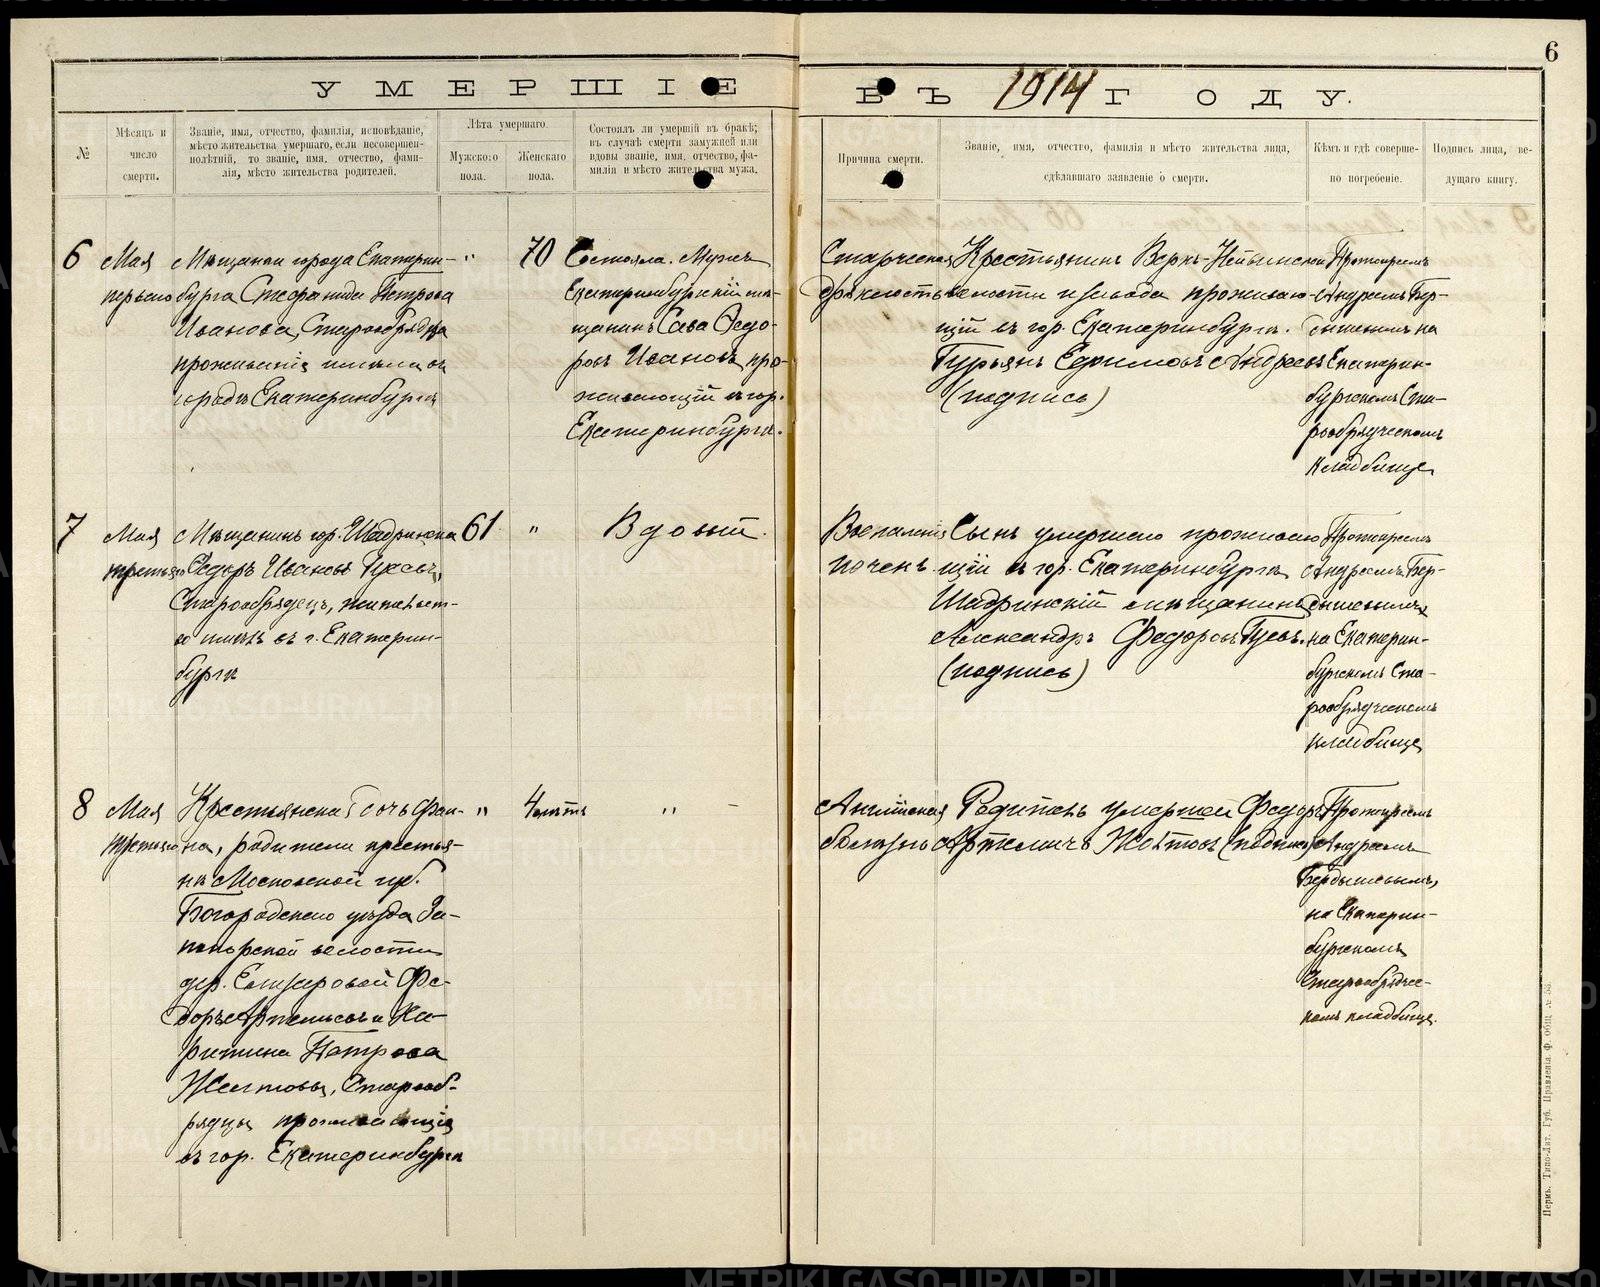 6
УМЕРШІЕ
ВЪ 1914 ГОДУ.
№
Мѣсяцъ и
число
смерти.
Званіе, имя, отчество, фамилія, исповѣданіе,
мѣсто жительства умершаго, если несовершен-
нолѣтній, то званіе, имя, отчество, фами-
лія, мѣсто жительства родителей.
Лѣта умершаго.
Мужского
пола.
Женскаго
пола.
Состоялъ ли умершій въ бракѣ;
въ случаѣ смерти замужней или
вдовы званіе, имя, отчество, фа-
милія и мѣсто жительства мужа.
Причина смерти.
Званіе, имя, отчество, фамилія и мѣсто жительства лица,
сдѣлавшаго заявленіе о смерти.
Кѣмъ и гдѣ соверше-
но погребеніе.
Подпись лица, ве-
дущаго книгу.
6
Мая
перваго
Мѣщанка города Екатерин-
бурга Стефанида Петрова
Иванова, Старообрядка
проживанія имѣла въ
городѣ Екатеринбургѣ
"
70
Состояла. Мужъ
Екатеринбургскій мѣ-
щанинъ Сава Федо-
ровъ Ивановъ, про-
живающій въ гор.
Екатеринбургѣ.
Старческая
дряхлость
Крестьянинъ Верхъ-Нейвинской
волости и завода проживаю-
щій въ гор. Екатеринбургѣ.
Гурьянъ Ефимовъ Андреевъ
(подпись)
Протоіереемъ
Андреемъ Бер-
дышевымъ на
Екатерин-
бургскомъ Ста-
рообрядческомъ
кладбище
7
Мая
третьяго
Мѣщанинъ гор. Шадринска
Федоръ Ивановъ Гусевъ,
Старообрядецъ, жительст-
во имѣлъ въ г. Екатерин-
бургѣ
61
"
Вдовый.
Воспаленіе
почекъ
Сынъ умершаго проживаю
щій въ гор. Екатеринбургѣ
Шадринскій мѣщанинъ
Александръ Федоровъ Гусевъ.
(подпись)
Протоіереемъ
Андреемъ Бер-
дышевымъ
на Екатерин-
бургскомъ Ста-
рообрядческомъ
кладбище
8
Мая
третьяго
Крестьянская дочь Фаи-
на, родители крестья-
не Московской губ.
Богородскаго уѣзда За-
понорской волости
дер. Елизаровой Фе-
доръ Артемьевъ и Ха-
ритина Петрова
Желтовы, Старооб-
рядцы проживающіе
въ гор. Екатеринбургѣ
"
4 лѣтъ
" -
Англійская
болѣзнь
Родитель умершей Федоръ
Артемичъ Желтовъ (подпись)
Протоіереемъ
Андреемъ
Бердышевымъ,
на Екатерин-
бургскомъ
Старообрядче-
комъ кладбище.
Пермь. Типо-Лит. Губ. Правленія. Ф. общ.
METRIKI.GASO-URAL.RU